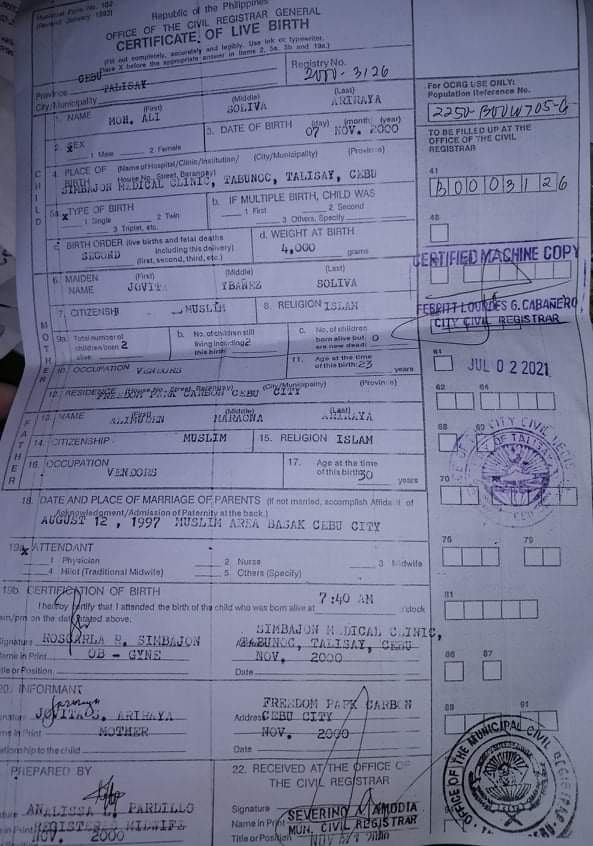 Municipal Form No. 102
(Revised January 1993)
Republic of the Philippines
OFFICE OF THE CIVIL REGISTRAR GENERAL
CERTIFICATE OF LIVE BIRTH
(Fill out completely, accurately and legibly. Use ink or typewriter.
Place X before the appropriate answer in Items 2, 5a, 5b and 19a.)
Province CEBU
City/Municipality TALISAY
Registry No.
2000-3126
1. NAME (First) (Middle) (Last)
MOH. ALI SOLIVA ARIRAYA
2. SEX
x 1 Male 2 Female
3. DATE OF BIRTH (day) (month) (year)
07 NOV. 2000
4. PLACE OF BIRTH (Name of Hospital/Clinic/Institution/ House No., Street, Barangay) (City/Municipality) (Province)
SIMBAJON MEDICAL CLINIC, TABUNOC, TALISAY, CEBU
5a. TYPE OF BIRTH
x 1 Single 2 Twin
3 Triplet, etc.
b. IF MULTIPLE BIRTH, CHILD WAS
1 First 2 Second
3 Others, Specify
c. BIRTH ORDER (live births and fetal deaths
including this delivery)
SECOND (first, second, third, etc.)
d. WEIGHT AT BIRTH
4,000 grams
CHILD
6. MAIDEN NAME (First) (Middle) (Last)
JOVITA YBAÑEZ SOLIVA
7. CITIZENSHIP MUSLIM 8. RELIGION ISLAM
9a. Total number of children born alive 2
b. No. of children still living including this birth 2
c. No. of children born alive but are now dead: 0
10. OCCUPATION VENDORS
11. Age at the time of this birth: 23 years
12. RESIDENCE (House No., Street, Barangay) (City/Municipality) (Province)
FREEDOM PARK CARBON CEBU CITY
MOTHER
13. NAME (First) (Middle) (Last)
MARAONA
14. CITIZENSHIP MUSLIM 15. RELIGION ISLAM
16. OCCUPATION
VENDORS
17. Age at the time of this birth: 30 years
FATHER
18. DATE AND PLACE OF MARRIAGE OF PARENTS (If not married, accomplish Affidavit of
Acknowledgment/Admission of Paternity at the back.)
AUGUST 12, 1997 MUSLIM AREA BASAK CEBU CITY
19a. ATTENDANT
x 1 Physician 2 Nurse 3 Midwife
4 Hilot (Traditional Midwife) 5 Others (Specify)
19b. CERTIFICATION OF BIRTH
I hereby certify that I attended the birth of the child who was born alive at 7:40 AM o'clock
am/pm on the date stated above.
Signature
Name in Print ROSCARLA R. SIMBAJON
Title or Position OB - GYNE
Address SIMBAJON MEDICAL CLINIC,
TABUNOC, TALISAY, CEBU
Date NOV. 2000
20. INFORMANT
Signature
Name in Print JOVITA S. ARIRAYA
Relationship to the child MOTHER
Address FREEDOM PARK CARBON
CEBU CITY
Date NOV. 2000
PREPARED BY
Signature
Name in Print ANALISSA L. PARDILLO
REGISTERED MIDWIFE
NOV. 2000
22. RECEIVED AT THE OFFICE OF
THE CIVIL REGISTRAR
Signature
Name in Print SEVERINO MAMODIA
Title or Position MUN. CIVIL REGISTRAR
For OCRG USE ONLY:
Population Reference No.
2250-B00VW705-G
TO BE FILLED UP AT THE
OFFICE OF THE CIVIL
REGISTRAR
41
B0003126
48
CERTIFIED MACHINE COPY
FEBRITT LOURDES G. CABAÑERO
CITY CIVIL REGISTRAR
61
JUL 02 2021
62 64
68 69
70
76 79
81
86 87
88 91
OFFICE OF THE MUNICIPAL CIVIL REGISTRAR